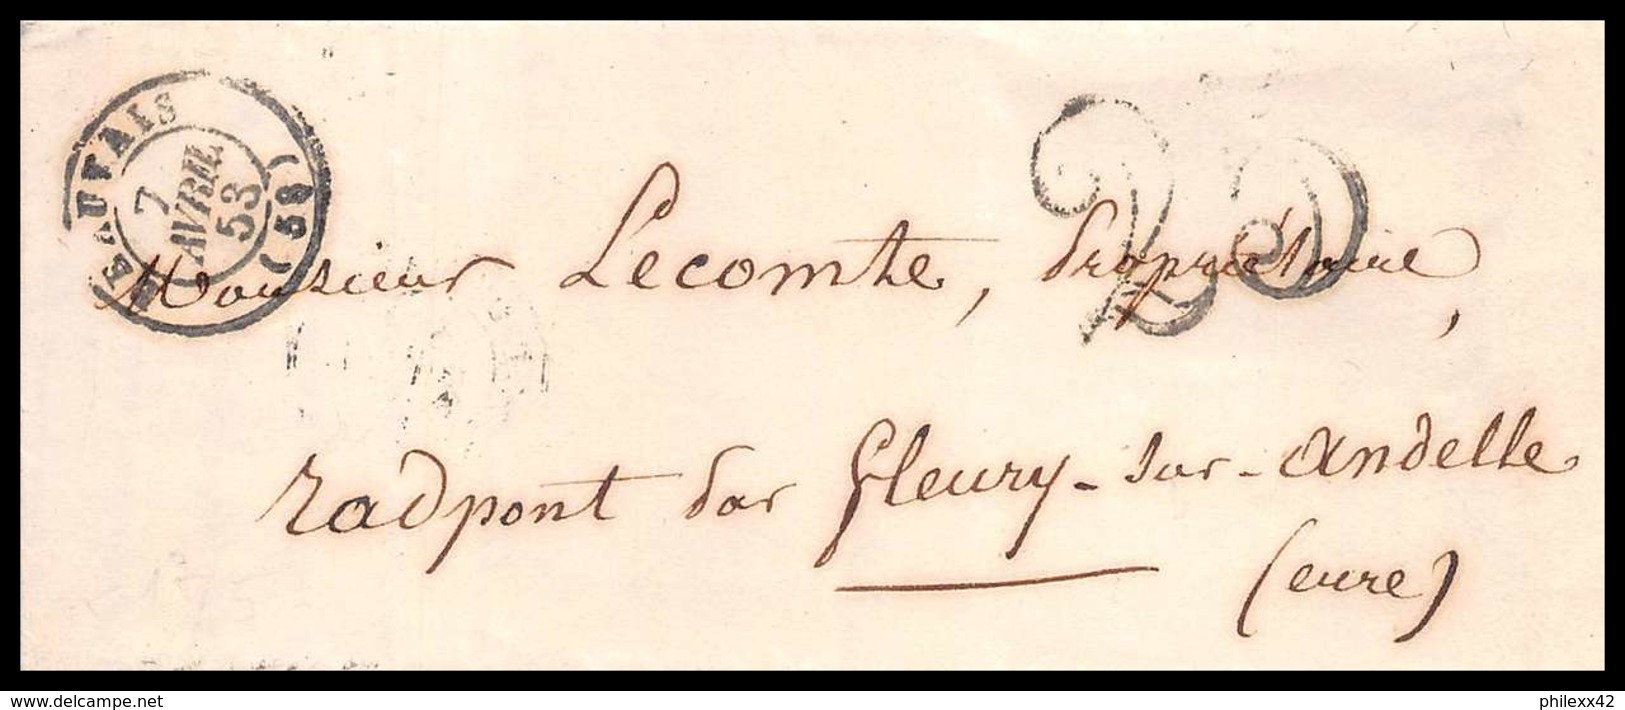 BEAUVAIS
7
AVRIL
53
(58)
25
Monsieur Lecomte, propriétaire,
radpont par fleury-sur-andelle
(eure)
philexx42